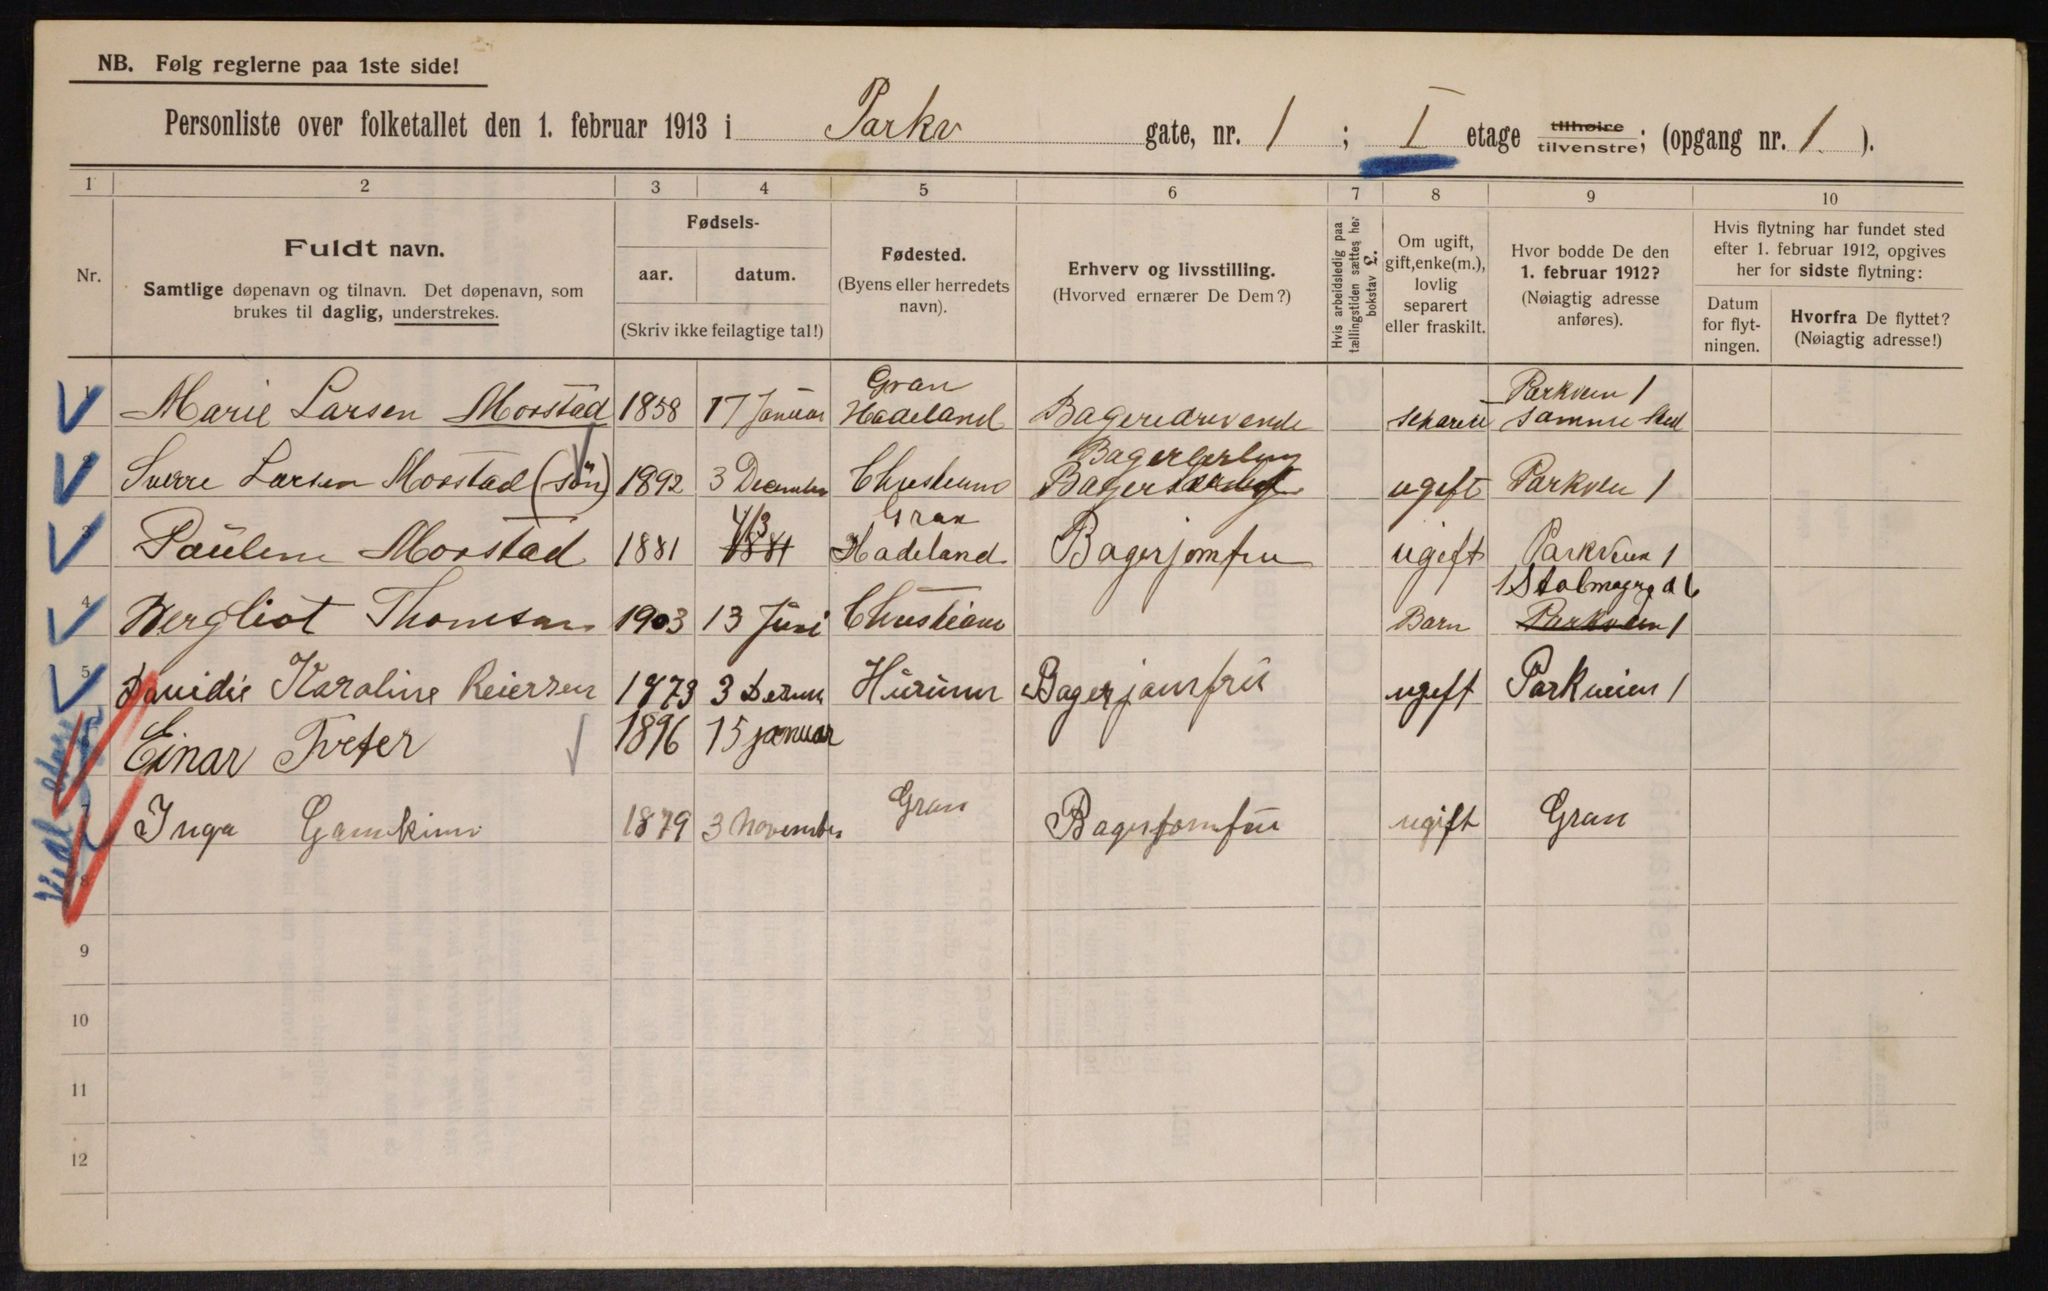 NB. Følg reglerne paa 1ste side!
Personliste over folketallet den 1. februar 1913 i Parkv gate, nr. 1 ; I etage tilhøire tilvenstre; (opgang nr. 1 ).
1 2 3 4 5 6 7 8 9 10
Nr.
Fuldt navn.
Samtlige døpenavn og tilnavn. Det døpenavn, som
brukes til daglig, understrekes.
Fødsels-
aar. datum.
(Skriv ikke feilagtige tal!)
Fødested.
(Byens eller herredets
navn).
Erhverv og livsstilling.
(Hvorved ernærer De Dem?)
Hvis arbeidsledig paa
tællingstiden sættes her
bokstav L.
Om ugift,
gift, enke(m.),
lovlig
separert
eller fraskilt.
Hvor bodde De den
1. februar 1912?
(Nøiagtig adresse
anføres).
Hvis flytning har fundet sted
efter 1. februar 1912, opgives
her for sidste flytning:
Datum
for flyt-
ningen.
Hvorfra De flyttet?
(Nøiagtig adresse!)
Gran Parkveien 1
1 Marie Larsen Morstad 1858 17 Januar Hadeland Bageridrivende samme sted
Bagerlerling
2 Sverre Larsen Morstad (søn) 1892 3 December Christiania ugift Parkveien 1
4/3 Gran
3 Pauline Morstad 1881 1881 Hadeland Bagerjomfru ugift Parkveien 1
4 Bergliot Thomsen 1903 13 Juni Christiania Barn Parkveien 1
5 Davidie Karoline Reiersen 1873 3 Hurum Bagerjomfru ugift Parkveien 1
Einar Tveter 1896 15 januar
7 Inga 1879 3 November Gran Bagerjomfru ugift Gran
8
9
10
11
12